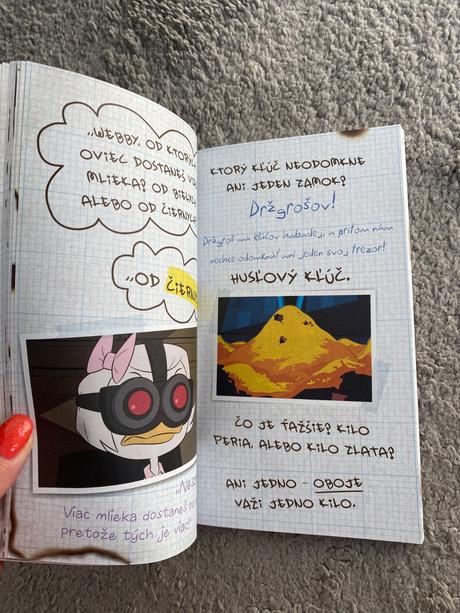 „WEBBY, OD KTORÝ
OVIEC DOSTANEŠ
MLIEKA? OD BIELY
ALEBO OD ČIERNY
„OD ČIERN
Viac mlieka dostaneš
pretože tých je viac!
KTORÝ KĽÚČ NEODOMKNE
ANI JEDEN ZÁMOK?
Držgrošov!
Držgroš má kľúčov habadej, a pritom nám
nechce odomknúť ani jeden svoj trezor!
HUSĽOVÝ KĽÚČ.
ČO JE ŤAŽŠIE? KILO
PERIA, ALEBO KILO ZLATA?
ANI JEDNO – OBOJE
VÁŽI JEDNO KILO.